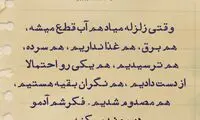 وقتی زلزله میاد هم آب قطع میشه،
هم برق، هم غذا نداریم، هم سرده،
هم ترسیدیم، هم یکی رو احتمالا
از دست دادیم، هم نگران بقیه هستیم،
هم مصدوم شدیم. فکرشم آدمو